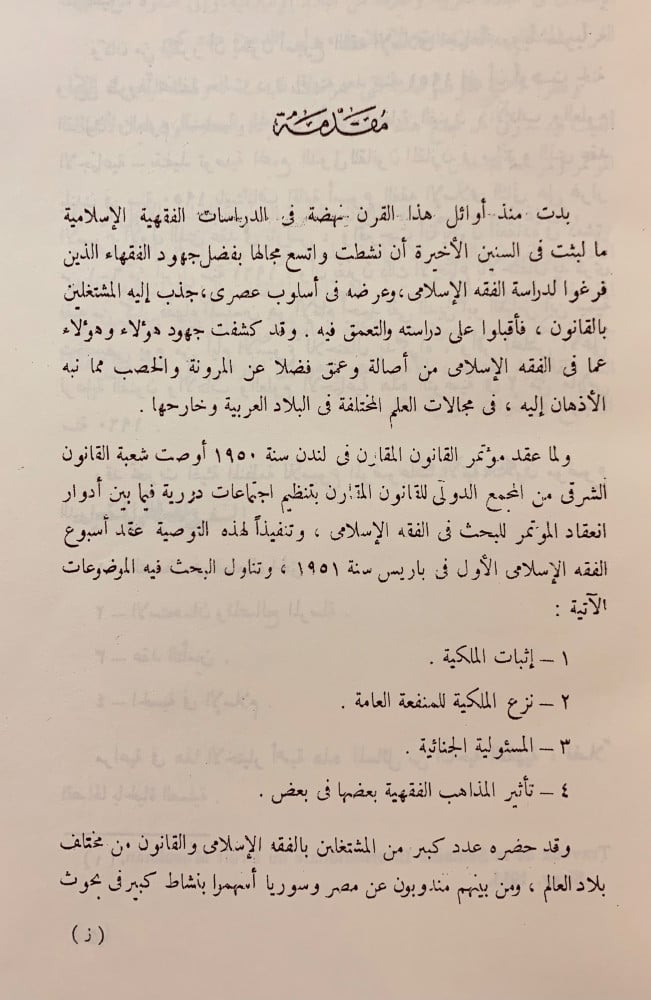 مقدمة
بدت منذ أوائل هذا القرن نهضة فى الدراسات الفقهية الإسلامية
ما لبثت فى السنين الأخيرة أن نشطت واتسع مجالها بفضل جهود الفقهاء الذين
فرغوا لدراسة الفقه الإسلامى، وعرضه فى أسلوب عصرى، جذب إليه المشتغلين
بالقانون ، فأقبلوا على دراسته والتعمق فيه . وقد كشفت جهود هؤلاء وهؤلاء
عما فى الفقه الإسلامى من أصالة وعمق فضلا عن المرونة والخصب مما نبه
الأذهان إليه ، فى مجالات العلم المختلفة فى البلاد العربية وخارحها .
ولما عقد مؤتمر القانون المقارن فى لندن سنة ١٩٥٠ أوصت شعبة القانون
الشرقى من المجمع الدولى للقانون المقارن بتنظيم اجتماعات دورية فيما بين أدوار
انعقاد المؤتمر للبحث فى الفقه الإسلامى ، وتنفيذاً لهذه التوصية عقد أسبوع
الفقه الإسلامى الأول فى باريس سنة ١٩٥١ ، وتناول البحث فيه الموضوعات
الآتية :
١ – إثبات الملكية .
٢ – نزع الملكية للمنفعة العامة .
٣ – المسئولية الجنائية .
٤ – تأثير المذاهب الفقهية بعضها فى بعض .
وقد حضره عدد كبير من المشتغلين بالفقه الإسلامى والقانون من مختلف
بلاد العالم ، ومن بينهم مندوبون عن مصر وسوريا أسهموا بنشاط كبير فى بحوث
( ز )